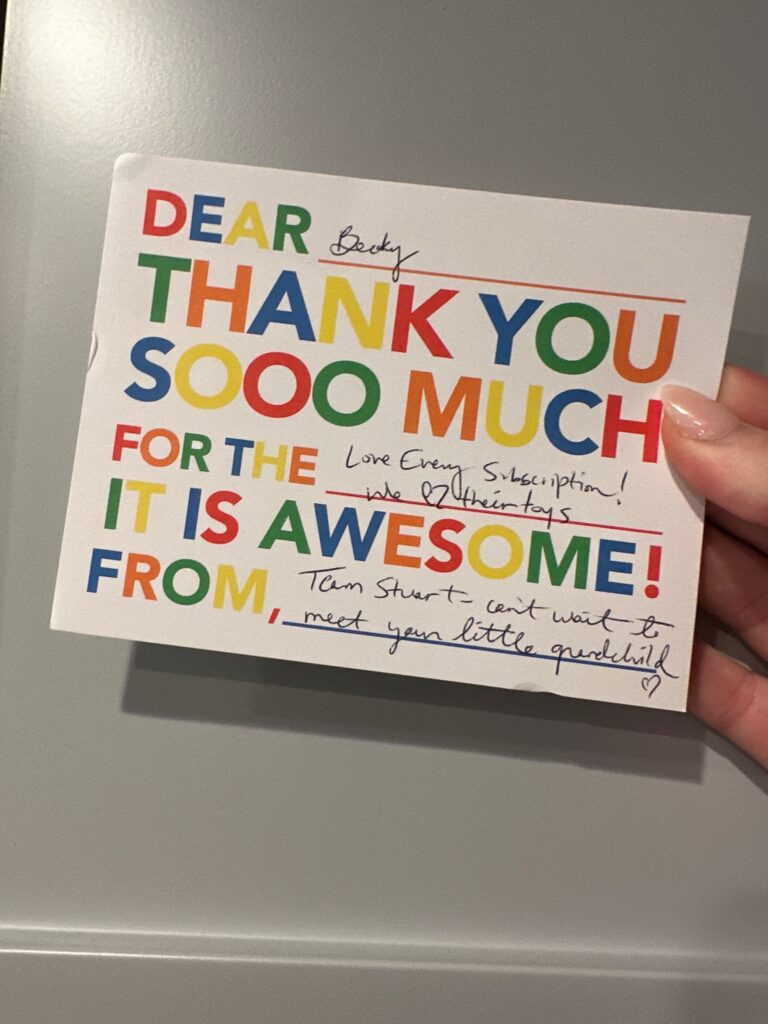 DEAR Becky
THANK YOU
SOOO MUCH
FOR THE Love Every Subscription!
We ♡ their toys
IT IS AWESOME!
FROM, Team Stuart - can't wait to
meet your little grandchild
♡